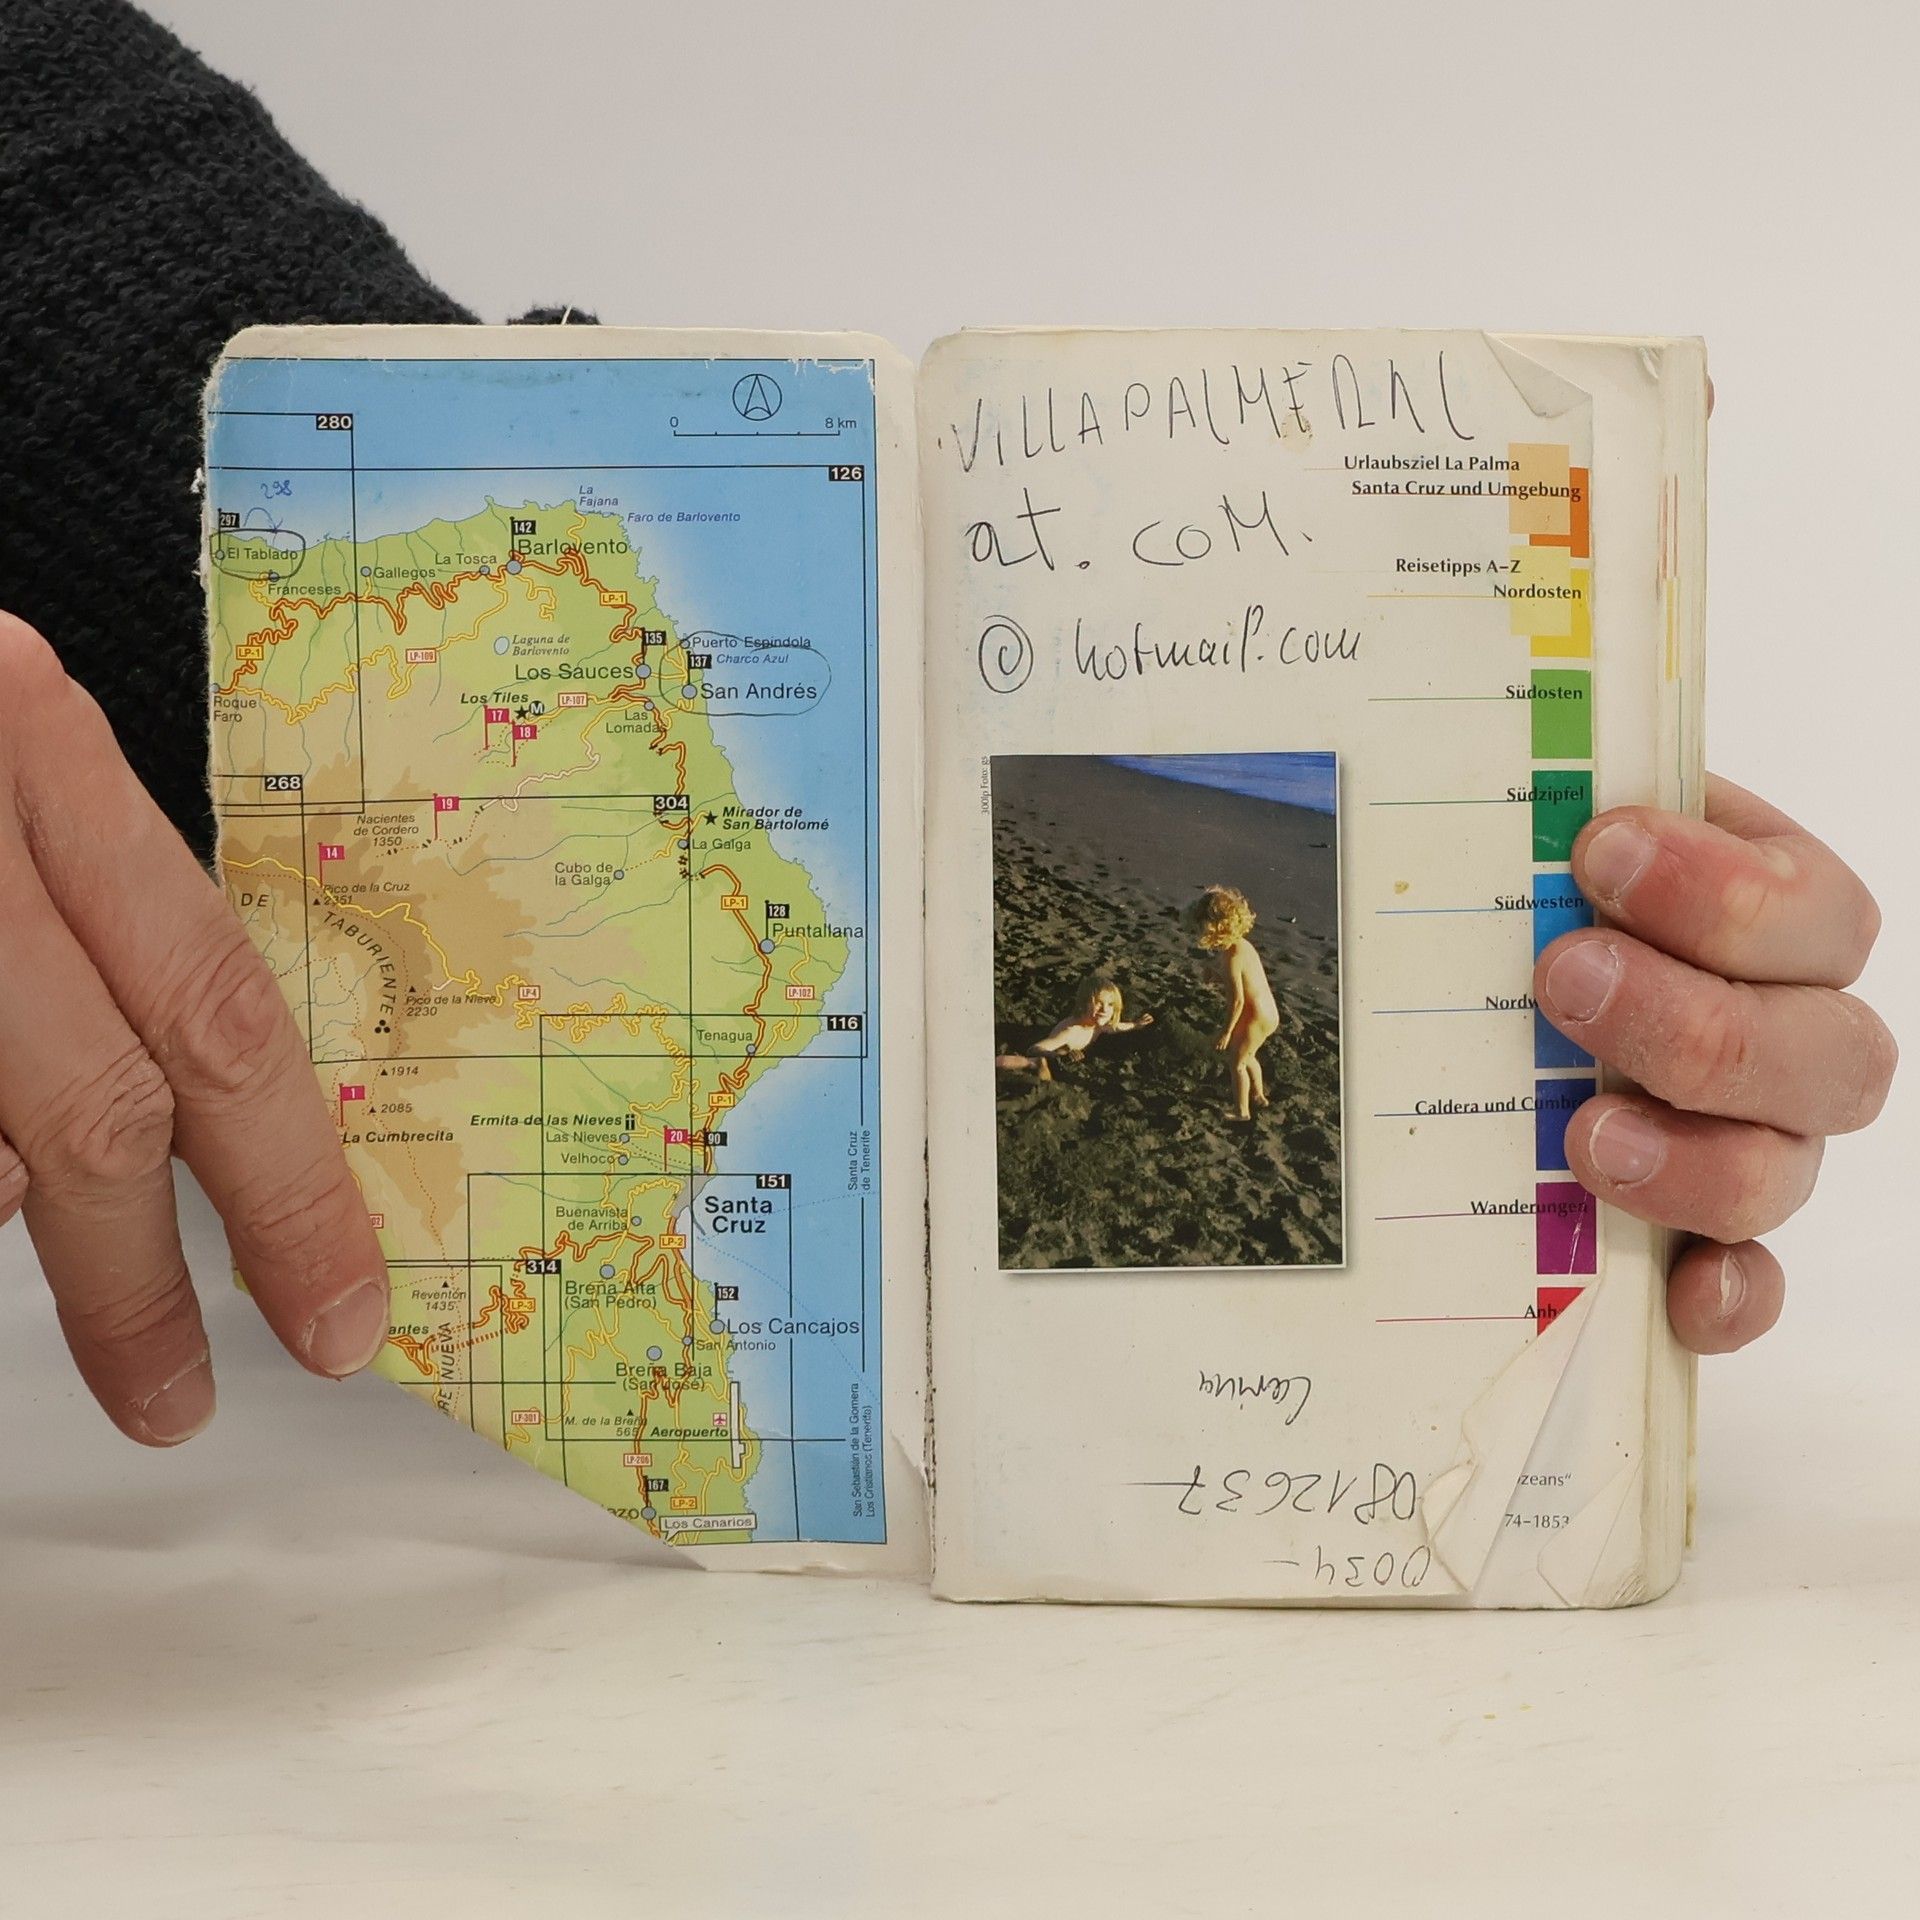 280
0 8 km
126
298
La
Fajana
297
Faro de Barlovento
142
El Tablado
La Tosca
Barlovento
Franceses
Gallegos
LP-1
LP-1
Laguna de
Barlovento
135
Puerto Espindola
LP-109
137
Charco Azul
Los Sauces
San Andrés
Roque
Faro
Los Tiles
M
LP-107
17
18
Las
Lomadas
268
19
304
Mirador de
San Bartolomé
Nacientes
de Cordero
1350
La Galga
14
Cubo de
la Galga
Pico de la Cruz
2351
DE
TABURIENTE
LP-1
128
Puntallana
Pico de la Nieve
2230
LP-4
LP-102
116
Tenagua
1914
1
2085
LP-1
La Cumbrecita
Ermita de las Nieves
Las Nieves
20
90
Velhoco
Santa Cruz
de Tenerife
151
Santa
Cruz
Buenavista
de Arriba
LP-2
314
Reventón
1435
Breña Alta
(San Pedro)
152
LP-3
Los Cancajos
antes
San Antonio
RE NUEVA
Breña Baja
(San José)
LP-301
M. de la Breña
565
Aeropuerto
LP-206
167
LP-2
azo
Los Canarios
San Sebastián de la Gomera
Los Cristianos (Tenerife)
VILLAPALMERAL
at. COM.
@ hotmail.com
Urlaubsziel La Palma
Santa Cruz und Umgebung
Reisetipps A–Z
Nordosten
Südosten
Südzipfel
Südwesten
Nordw
Caldera und Cumbre
Wanderungen
Anh
300lp Foto: gs
zeans“
74–1853
0034–
0812637
Carina